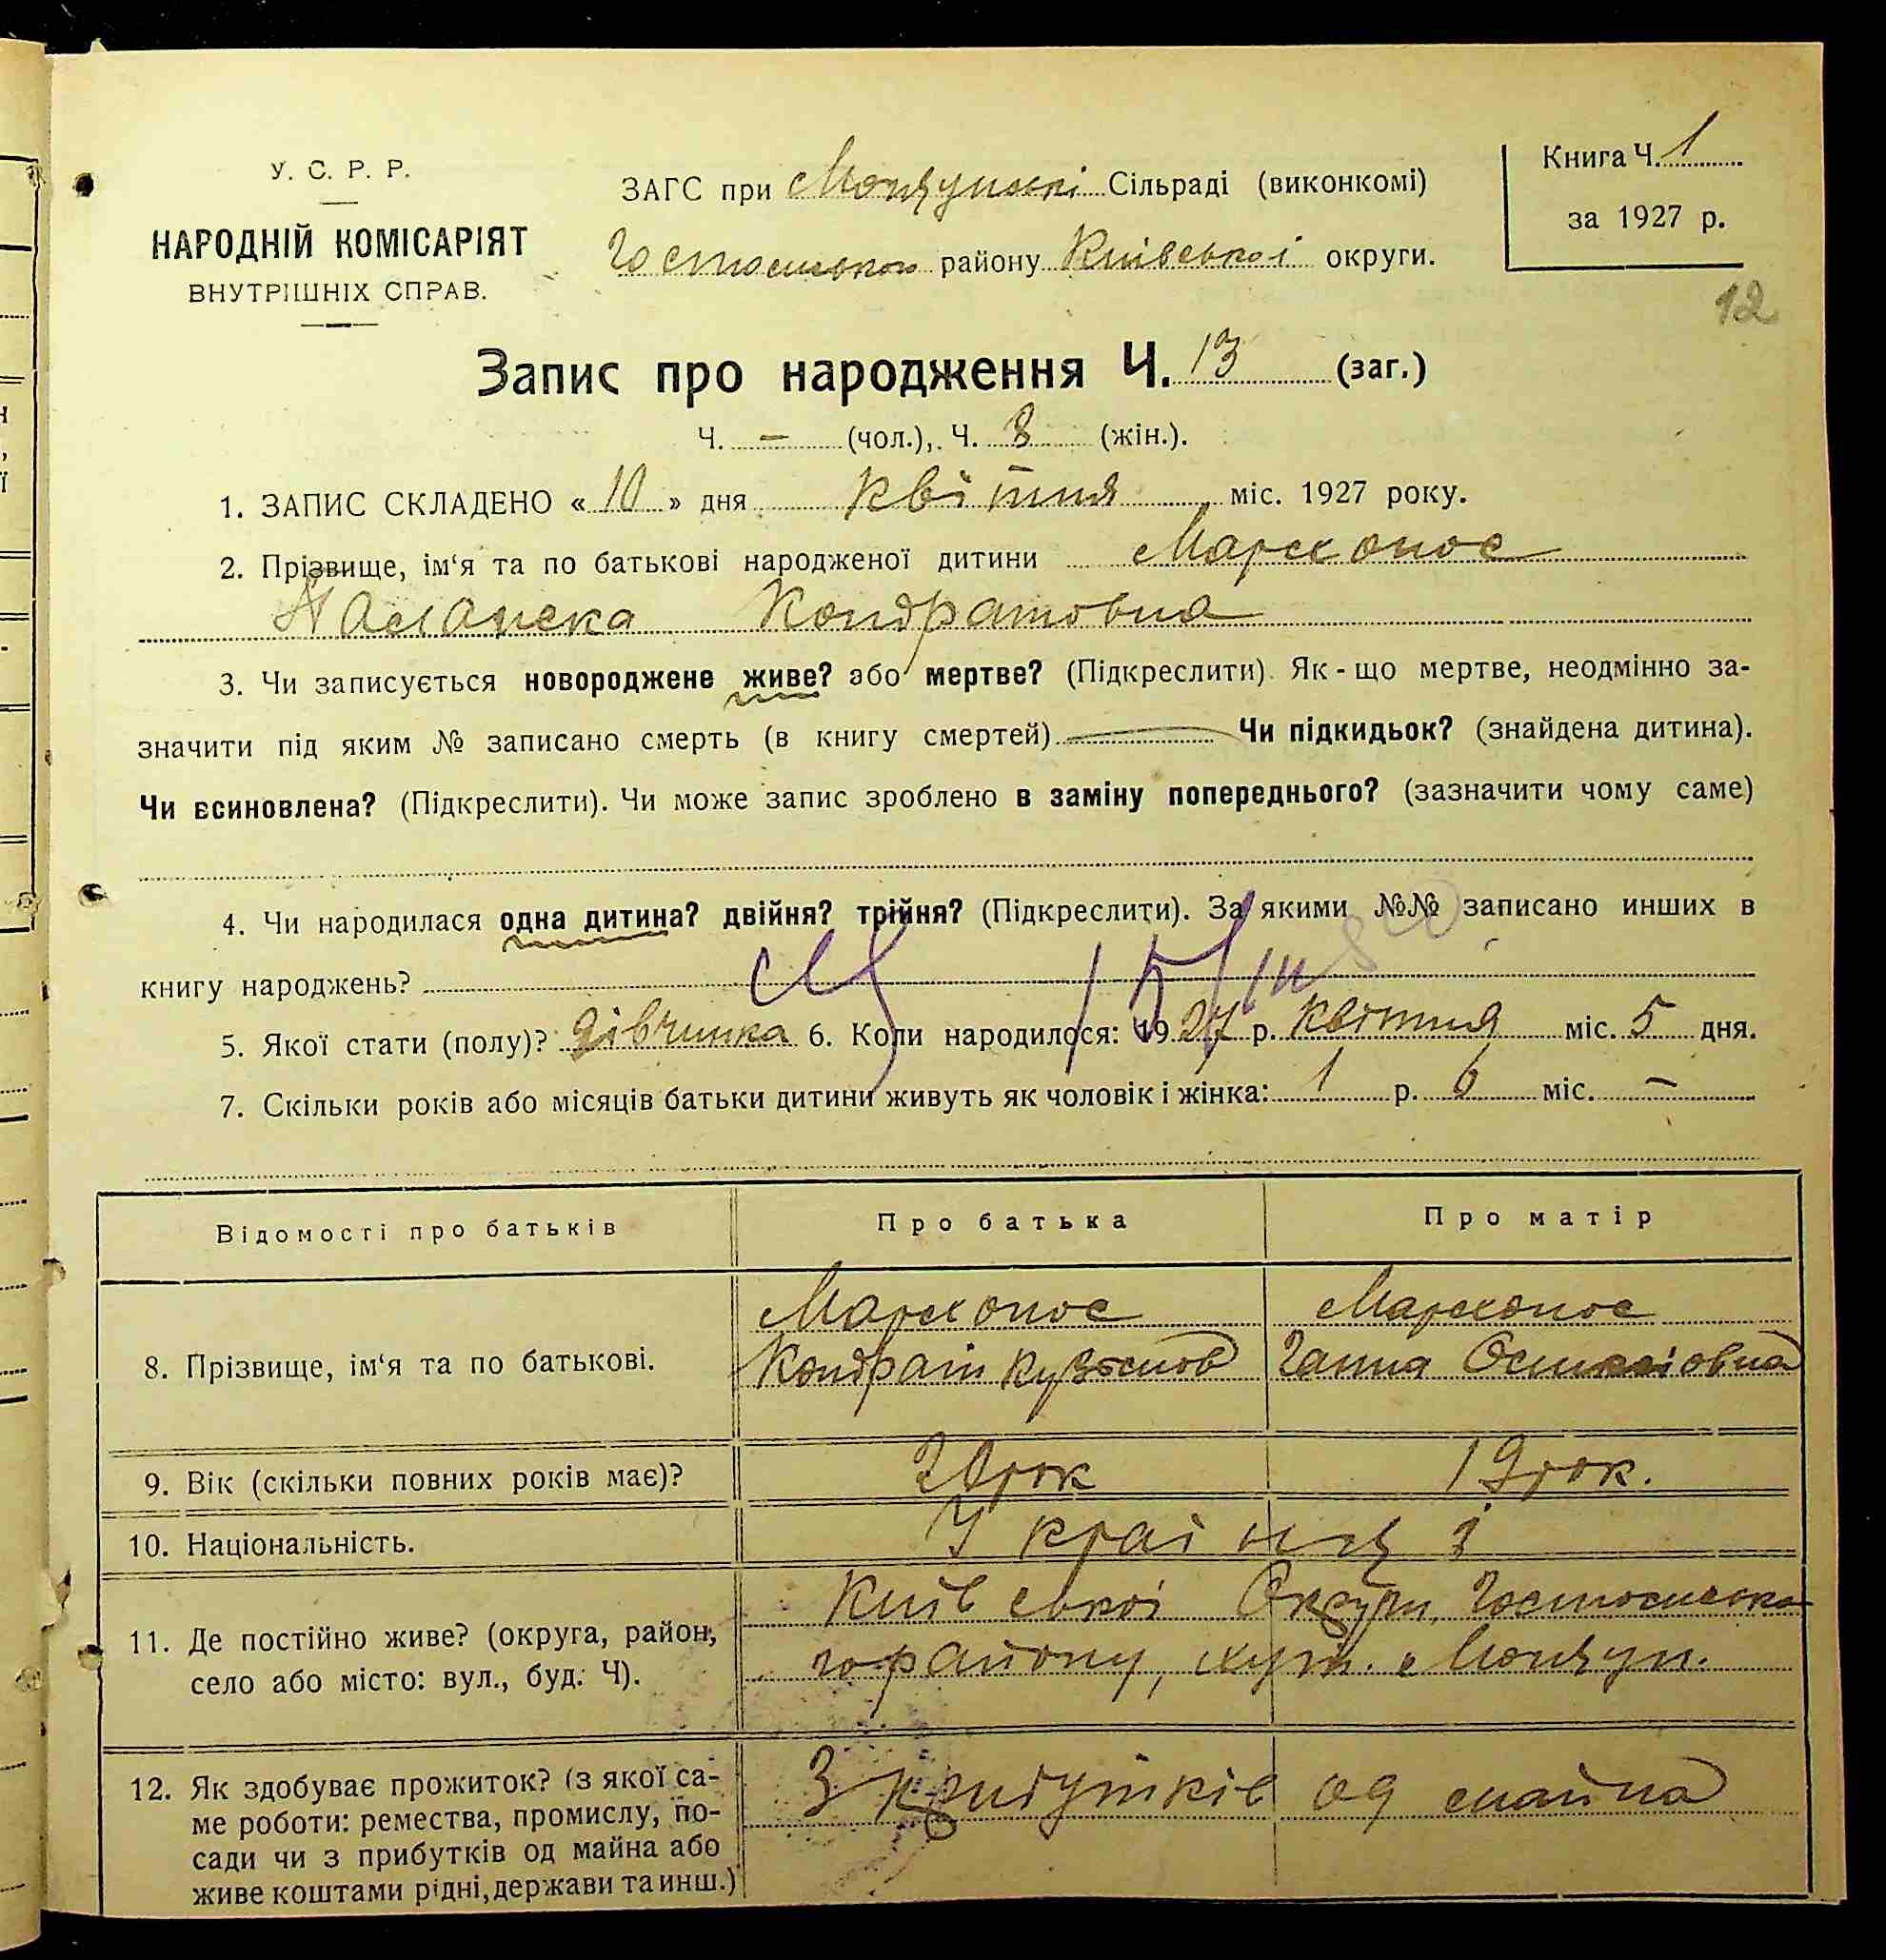 У. С. Р. Р.
НАРОДНІЙ КОМІСАРІЯТ
ВНУТРІШНІХ СПРАВ.
ЗАГС при Мощунські Сільраді (виконкомі)
Гостомського району Київської округи.
Книга Ч. 1
за 1927 р.
12
Запис про народження Ч. 13 (заг.)
Ч. — (чол.), Ч. 8 (жін.).
1. ЗАПИС СКЛАДЕНО « 10 » дня квітня міс. 1927 року.
2. Прізвище, ім‘я та по батькові народженої дитини
Кондратовна
3. Чи записується новороджене живе? або мертве? (Підкреслити). Як - що мертве, неодмінно за-
значити під яким № записано смерть (в книгу смертей) Чи підкидьок? (знайдена дитина).
Чи всиновлена? (Підкреслити). Чи може запис зроблено в заміну попереднього? (зазначити чому саме)
4. Чи народилася одна дитина? двійня? трійня? (Підкреслити). За якими №№ записано инших в
книгу народжень?
5. Якої стати (полу)? дівчинка 6. Коли народилося: 1927 р. квітня міс. 5 дня.
7. Скільки років або місяців батьки дитини живуть як чоловік і жінка: 1 р. 6 міс. —
Відомості про батьків
Про батька
Про матір
8. Прізвище, ім‘я та по батькові.
Кондрат
Ганна
9. Вік (скільки повних років має)?
20 рок
19 рок.
10. Національність.
Українці
11. Де постійно живе? (округа, район, село або місто: вул., буд. Ч).
Київської Округи, Гостомсько
го району, хут. Мощун.
12. Як здобуває прожиток? (з якої са-
ме роботи: ремества, промислу, по-
сади чи з прибутків од майна або
живе коштами рідні, держави та инш.)
З прибутків од майна